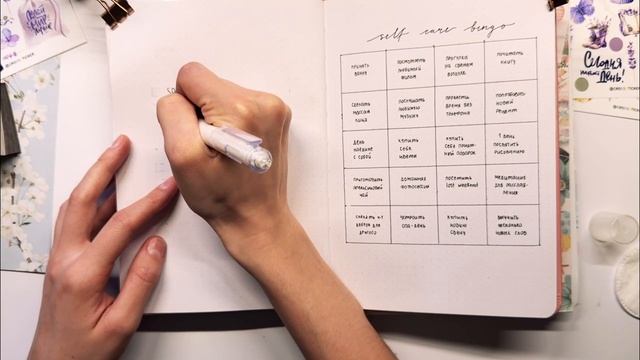 self care bingo
ПРИНЯТЬ
ВАННУ
ПОСМОТРЕТЬ
ЛЮБИМЫЙ
ФИЛЬМ
ПРОГУЛКА
НА СВЕЖЕМ
ВОЗДУХЕ
ПОЧИТАТЬ
КНИГУ
СДЕЛАТЬ
МАССАЖ
ЛИЦА
ПОСЛУШАТЬ
ЛЮБИМУЮ
МУЗЫКУ
ПРОВЕСТИ
ВРЕМЯ БЕЗ
ТЕЛЕФОНА
ПОПРОБОВАТЬ
НОВЫЙ
РЕЦЕПТ
ДЕНЬ
НАЕДИНЕ
С СОБОЙ
КУПИТЬ
СЕБЕ
ЦВЕТЫ
КУПИТЬ
СЕБЕ ПРИЯТ-
НЫЙ ПОДАРОК
1 ДЕНЬ
ПОСВЯТИТЬ
РИСОВАНИЮ
ПРИГОТОВИТЬ
АПЕЛЬСИНОВЫЙ
ЧАЙ
ДОМАШНЯЯ
ФОТОСЕССИЯ
ПОСЕТИТЬ
lost weekend
МЕДИТАЦИЯ
ДЛЯ РАССЛАБ-
ЛЕНИЯ
ДЛЯ
УСТРОИТЬ
СПА-ДЕНЬ
КУПИТЬ
НОВУЮ
СВЕЧУ
ВЫУЧИТЬ
НЕСКОЛЬКО
НОВЫХ СЛОВ
Сегодня
День!